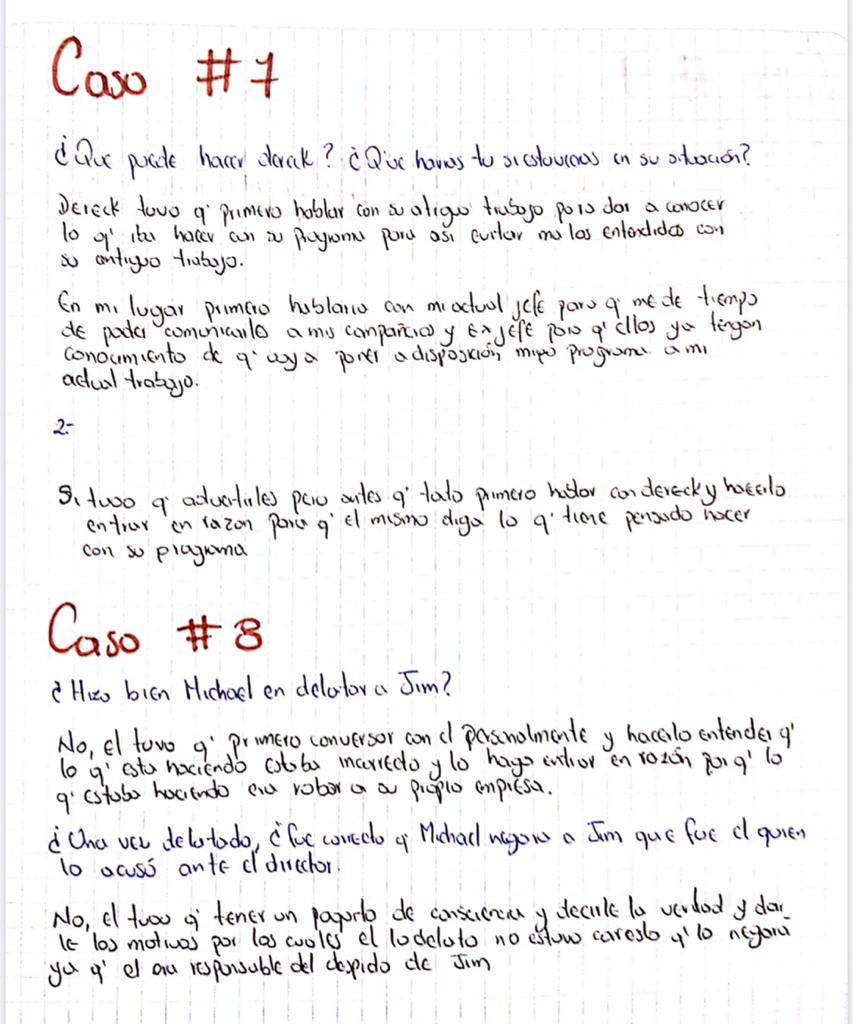 Caso #7
¿Que puede hacer derek? ¿Que harias tu si estuvieras en su situación?
Dereck tuvo q' primero hablar con su atiguo trabajo para dar a conocer
lo q' iba hacer con su programa para asi evitar ma los entendidos con
su antiguo trabajo.
En mi lugar primero hablaria con mi actual jefe para q' me de tiempo
de poder comunicarlo a mis compañeros y Ex jefe para q' ellos ya tengan
conocimiento de q' voy a poner a disposición programa a mi
actual trabajo.
2-
Si tuvo q' advertirles pero antes q' todo primero hablar con dereck y hacerlo
entrar en razon para q' el mismo diga lo q' tiene pensado hacer
con su programa
Caso #8
¿Hizo bien Michael en delatar a Jim?
No, el tuvo q' primero conversar con el personalmente y hacerlo entender q'
lo q' esta haciendo estaba incorrecto y lo haga entrar en razón por q' lo
q' estaba haciendo era robar a su propio empresa.
¿Una vez delatado, ¿fue correcto q Michael negara a Jim que fue el quien
lo acusó ante el director.
No, el tuvo q' tener un de consciencia y decirle la verdad y dar_
le los motivos por los cuales el lo delato no estuvo q' lo negara
ya q' el era responsable del despido de Jim